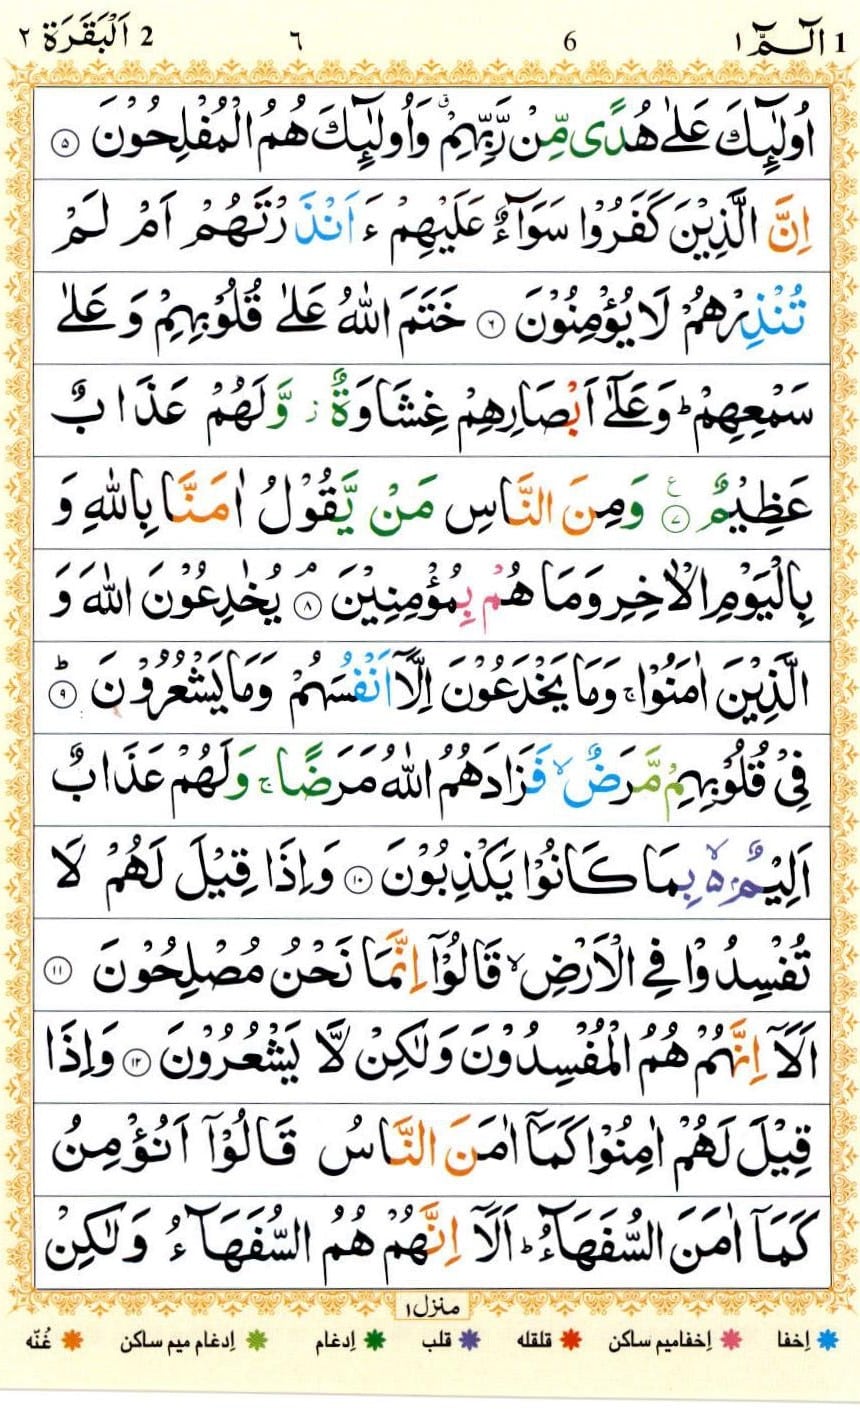 1 الٓـمّٓ ١ 6 ٦ 2 اَلْبَقَرَة ٢
اُولٰٓئِكَ عَلٰى هُدًى مِّنْ رَّبِّهِمْ ۗ وَاُولٰٓئِكَ هُمُ الْمُفْلِحُوْنَ ۝٥
اِنَّ الَّذِيْنَ كَفَرُوْا سَوَآءٌ عَلَيْهِمْ ءَاَنْذَرْتَهُمْ اَمْ لَمْ
تُنْذِرْهُمْ لَا يُؤْمِنُوْنَ ۝٦ خَتَمَ اللّٰهُ عَلٰى قُلُوْبِهِمْ وَعَلٰى
سَمْعِهِمْ ؕ وَعَلٰٓى اَبْصَارِهِمْ غِشَاوَةٌ ز وَّلَهُمْ عَذَابٌ
عَظِيْمٌ ۝٧ ع وَمِنَ النَّاسِ مَنْ يَّقُوْلُ اٰمَنَّا بِاللّٰهِ وَ
بِالْيَوْمِ الْاٰخِرِ وَمَا هُمْ بِمُؤْمِنِيْنَ ۘ ۝٨ يُخٰدِعُوْنَ اللّٰهَ وَ
الَّذِيْنَ اٰمَنُوْا ۚ وَمَا يَخْدَعُوْنَ اِلَّاۤ اَنْفُسَهُمْ وَمَا يَشْعُرُوْنَ ؕ ۝٩
فِيْ قُلُوْبِهِمْ مَّرَضٌ ۙ فَزَادَهُمُ اللّٰهُ مَرَضًا ۚ وَلَهُمْ عَذَابٌ
اَلِيْمٌۢ ۙ۬ بِمَا كَانُوْا يَكْذِبُوْنَ ۝١٠ وَاِذَا قِيْلَ لَهُمْ لَا
تُفْسِدُوْا فِي الْاَرْضِ ۙ قَالُوْۤا اِنَّمَا نَحْنُ مُصْلِحُوْنَ ۝١١
اَلَاۤ اِنَّهُمْ هُمُ الْمُفْسِدُوْنَ وَلٰكِنْ لَّا يَشْعُرُوْنَ ۝١٢ وَاِذَا
قِيْلَ لَهُمْ اٰمِنُوْا كَمَاۤ اٰمَنَ النَّاسُ قَالُوْۤا اَنُؤْمِنُ
كَمَاۤ اٰمَنَ السُّفَهَآءُ ؕ اَلَاۤ اِنَّهُمْ هُمُ السُّفَهَآءُ وَلٰكِنْ
منزل ١
اِخفا اِخفامیم ساکن قلقله قلب اِدغام اِدغام میم ساکن غُنّه